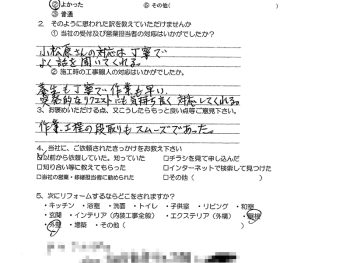 ②よかった ⑥その他( )
③普通
2．そのように思われた訳を教えていただけませんか
① 当社の受付及び営業担当者の対応はいかがでしたか？
小松原さんの対応は丁寧で
よく話を聞いてくれる。
② 施工時の工事職人の対応はいかがでしたか？
養生も丁寧で作業も早い、
突発的なリクエストにも気持ち良く対応してくれる。
3．お褒めいただける点、又こうしたらもっと良い点等ご意見下さい。
作業工程の段取りもスムーズであった。
4．当社に、ご依頼されたきっかけをお教え下さい
以前から依頼していた。知っていた □チラシを見て申し込んだ
□知り合い等に教えてもらった □インターネットで検索して見つけた
□当社の営業・移種担当者に勧められた □その他( )
5．次にリフォームするならどこをされますか？
・キッチン ・浴室 ・洗面 ・トイレ ・子供室 ・リビング ・和室
・玄関 ・インテリア（内装工事全般） ・エクステリア（外構） ・屋根
・外壁 ・増築 ・その他（